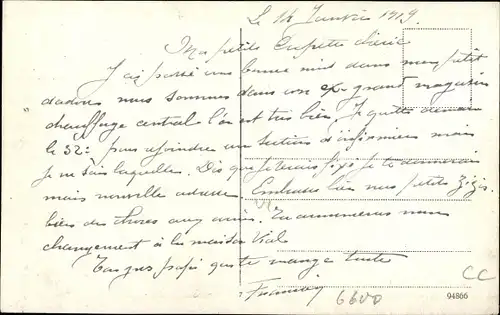 Le 14 Janvier 1919.
Ma petite chérie
J'ai passé une bonne nuit dans mon petit
nous sommes dans un ex-grand magasin
chauffage central l'on est très bien. Je quitte demain
le 32e pour rejoindre une section d'infirmiers mais
je ne sais laquelle. Dès que je serai fixé je te donnerai
mais nouvelle adresse. Embrasse bien nos petits Zizis.
bien des choses aux amis. Tu annonceras mon
changement à la maison
papa qui te mange toute
6600
CC
94866